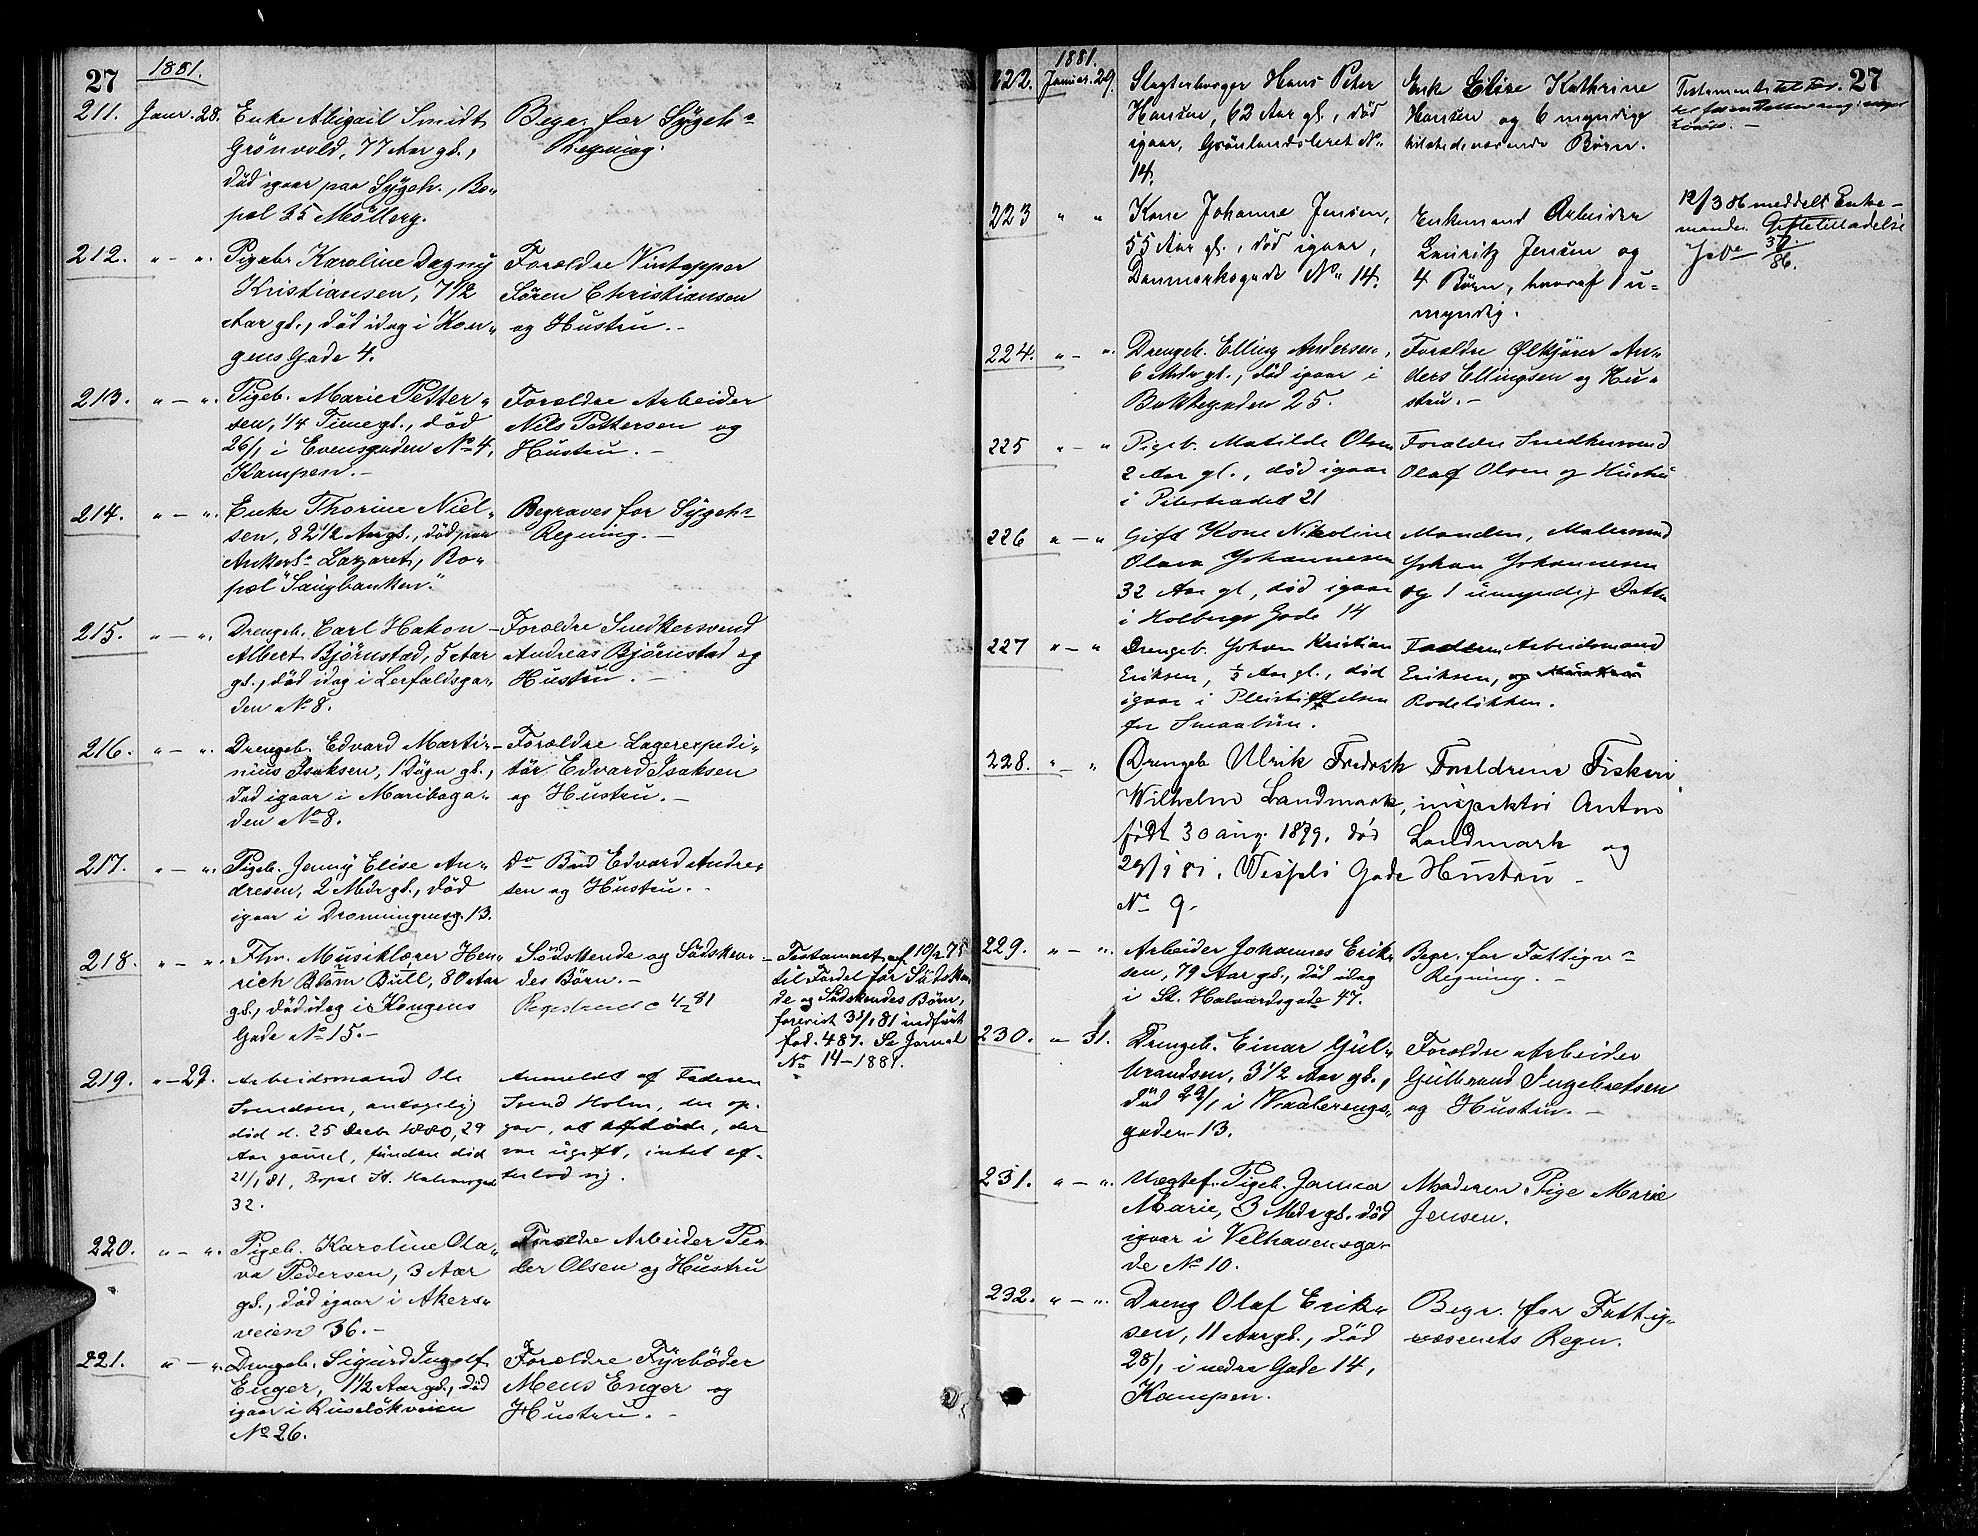 27
1881.
211. Janr. 28. Enke Abigail Smidt
Grönvold, 77 Aar gl.,
död igaar paa Sygeh., Bo-
pæl 25 Möllerg.
Begr. for Sygeh.
Regning.
212. " - " Pigebr Karoline Dagny
Kristiansen, 7 1/2
Aar gl., död idag i Kon-
gens Gade 4.
Forældre Vintapper
Sören Christiansen
og Hustru. -
213. " - " Pigeb. Marie Petter-
sen, 1/4 Time gl., död
26/1 i Evensgaden No 4,
Kampen. -
Forældre Arbeider
Nils Pettersen og
Hustru. -
214. " - " Enke Thorine Niel-
sen, 82 1/2 Aar gl., död paa
Ankers Lazaret, Bo-
pæl "Saugbanken".
Begraves for Sygeh.
Regning. -
215. " - " Drengeb. Carl Hakon
Albert Björnstad, 5 Aar
gl., död idag i Lerfaldsga-
den No 8.
Forældre Snedkersvend
Andreas Björnstad og
Hustru. -
216. " - " Drengeb. Edvard Marti-
nius Isaksen, 1 Dögn gl.,
död igaar i Mariboga-
den No 8.
Forældre Lagerexpedi-
tör Edvard Isaksen
og Hustru. -
217. " - " Pigeb. Jenny Elise An-
dresen, 2 Mdr gl., död
igaar i Dronningensg. 13.
Do Bud Edvard Andre-
sen og Hustru. -
218. " - " Fhv. Musiklærer Hen-
rich Blom Bull, 80 Aar
gl., död idag i Kongens
Gade No 15. -
Södskende og Södsken-
des Börn. -
4/2 81
Testament af 10/2 75
til Fordel for Södsken-
de og Södskendes Börn,
forevist 31/1 81 indfört
fol. 487. Se Jornal
No 14-1881.
219. " - 29. Arbeidsmand Ole
Svendsen, antagelig
död d. 25 Decb 1880, 29
Aar gammel, funden död
21/1 81, Bopæl St. Halvorsgad
32.
Anmeldt af Faderen
Svend Holm, der op-
gav, at afdöde, der
var ugift, intet ef-
terlod sig.
220. " - " Pigeb. Karoline Ola-
va Pedersen, 3 Aar
gl., död igaar i Akers-
veien 36. -
Forældre Arbeider Pe-
der Olsen og Hustru
221. " - " Drengeb. Sigurd Ingolf
Enger, 1 1/2 Aar gl., död
igaar i Ruselökveien
No 26.
Forældre Fyrböder
Mens Enger og
Hustru. -
27
1881.
222. Januar. 29. Slagterborger Hans Peter
Hansen, 62 Aar gl., död
igaar, Grönlandsleret No
14.
Enke Elise Kathrine
Hansen og 6 myndige
tilstedeværende Börn.
223 " " Kone Johanne Jensen,
55 Aar gl., död igaar,
Danmarksgade No 14.
Enkemand Arbeider
Lauritz Jensen og
4 Börn, hvoraf 1 u-
myndig.
12/3 86 meddelt Enke-
manden Giftetilladelse
224. " - " Drengeb. Elling Andersen,
6 Mdr gl., död igaar i
Bakkegaden 25.
Forældre Ølkjörer An-
ders Ellingsen og Hu-
stru. -
225 " - " Pigeb. Matilde Olsen
2 Aar gl., död igaar
i Pilestrædet 21
Forældre Snedkersvend
Olaf Olsen og Hustru
226 " - " Gift Kone Nikoline
Olava Johannesen
32 Aar gl, död igaar
i Holbergs Gade 14
Manden, Malersvend
Johan Johannesen
og 1 umyndig Datter
227 " - " Drengeb. Johan Kristian
Eriksen, 1/2 Aar gl., död
igaar i Pleiestiftelsen
for Smaabörn.
Faderen Arbeidsmand
Eriksen, og Hustru
Rodelökken.
228. " - " Drengeb Ulrik Fredrik
Wilhelm Landmark,
födt 30 aug. 1879, död
29/1 81, Wessels Gade
No 9.
Forældrene Fiskeri
inspektör Anton
Landmark og
Hustru -
229. " - " Arbeider Johannes Erik-
sen, 79 Aar gl., död idag
i St. Halvardsgade 47.
Begr. for Fattigv.
Regning. -
230. " 31. Drengeb. Einar Gul-
brandsen, 3 1/2 Aar gl.,
död 29/1 i Vaalerengs-
gaden 13.
Forældre Arbeider
Gulbrand Ingebretsen
og Hustru. -
231. " - " Uægtef. Pigeb. Janna
Marie, 3 Mdr gl. död
igaar i Velhavensga-
de No 10.
Moderen Pige Marie
Jensen.
232. " - " Dreng Olaf Erik-
sen, 11 Aar gl., död
28/1 i nedre Gade 14,
Kampen.
Begr. for Fattig-
væsenets Regn.